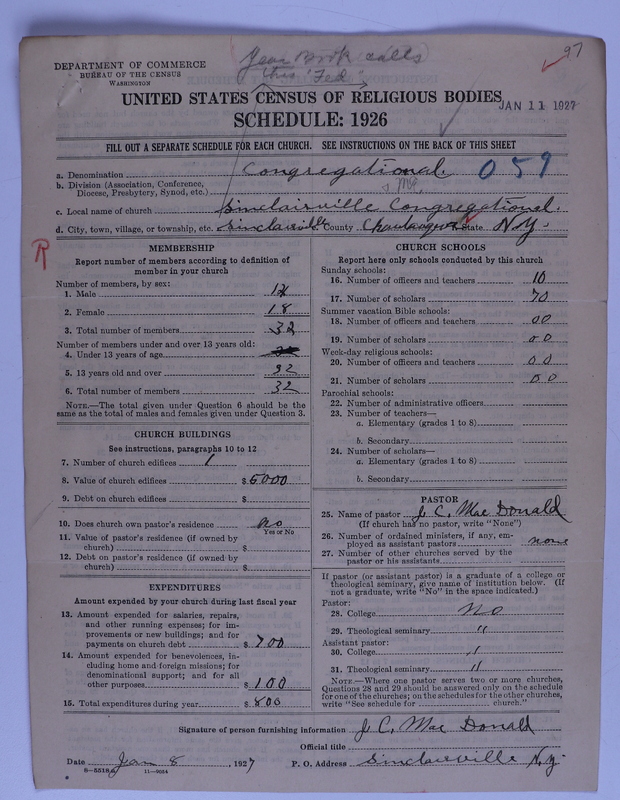 Year Book calls
this "Fed"
97
DEPARTMENT OF COMMERCE
BUREAU OF THE CENSUS
WASHINGTON
UNITED STATES CENSUS OF RELIGIOUS BODIES
JAN 11 1927
SCHEDULE: 1926
FILL OUT A SEPARATE SCHEDULE FOR EACH CHURCH. SEE INSTRUCTIONS ON THE BACK OF THIS SHEET
a. Denomination Congregational. 059
b. Division (Association, Conference,
Diocese, Presbytery, Synod, etc.)
c. Local name of church Sinclairville Congregational.
d. City, town, village, or township, etc. Sinclairville County Chautauqua State N.Y.
R
MEMBERSHIP
Report number of members according to definition of
member in your church
Number of members, by sex:
1. Male 14
2. Female 18
3. Total number of members 32
Number of members under and over 13 years old:
4. Under 13 years of age
5. 13 years old and over 32
6. Total number of members 32
NOTE.—The total given under Question 6 should be the
same as the total of males and females given under Question 3.
CHURCH BUILDINGS
See instructions, paragraphs 10 to 12
7. Number of church edifices 1
8. Value of church edifices $5000
9. Debt on church edifices $
10. Does church own pastor's residence No
Yes or No
11. Value of pastor's residence (if owned by
church) $
12. Debt on pastor's residence (if owned by
church) $
EXPENDITURES
Amount expended by your church during last fiscal year
13. Amount expended for salaries, repairs,
and other running expenses; for im-
provements or new buildings; and for
payments on church debt $700
14. Amount expended for benevolences, in-
cluding home and foreign missions; for
denominational support; and for all
other purposes $100
15. Total expenditures during year $800
CHURCH SCHOOLS
Report here only schools conducted by this church
Sunday schools:
16. Number of officers and teachers 10
17. Number of scholars 70
Summer vacation Bible schools:
18. Number of officers and teachers 00
19. Number of scholars 00
Week-day religious schools:
20. Number of officers and teachers 00
21. Number of scholars 00
Parochial schools:
22. Number of administrative officers
23. Number of teachers—
a. Elementary (grades 1 to 8)
b. Secondary
24. Number of scholars—
a. Elementary (grades 1 to 8)
b. Secondary
PASTOR
25. Name of pastor J. C. Mac Donald
(If church has no pastor, write "None")
26. Number of ordained ministers, if any, em-
ployed as assistant pastors none
27. Number of other churches served by the
pastor or his assistants
If pastor (or assistant pastor) is a graduate of a college or
theological seminary, give name of institution below. (If
not a graduate, write "No" in the space indicated.)
Pastor:
28. College No
29. Theological seminary "
Assistant pastor:
30. College "
31. Theological seminary "
NOTE.—Where one pastor serves two or more churches,
Questions 28 and 29 should be answered only on the schedule
for one of the churches; on the schedules for the other churches,
write "See schedule for church."
Signature of person furnishing information J. C. Mac Donald
Official title
Date Jan 8, 1927 P. O. Address Sinclairville N.Y.
11—9054